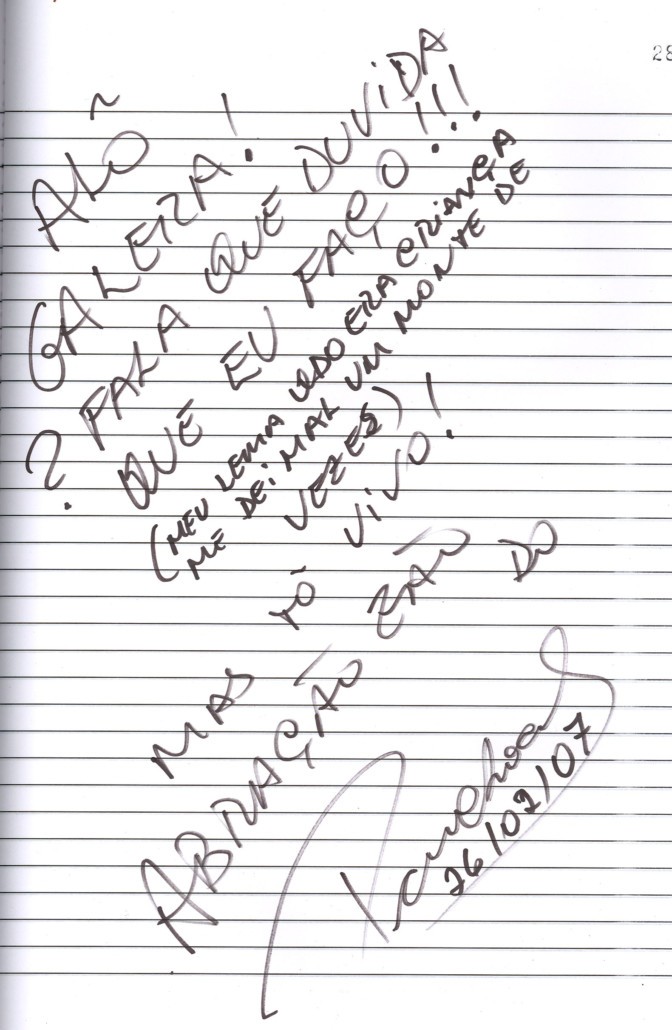 28
ALÔ
GALERA!
? FALA QUE DUVIDA
QUE EU FAÇO!!!
(MEU LEMA QDO ERA CRIANÇA
ME DEI MAL UM MONTE DE
VEZES)
MAS TÔ VIVO!
ABRAÇÃO ZÃO DO
26/02/07